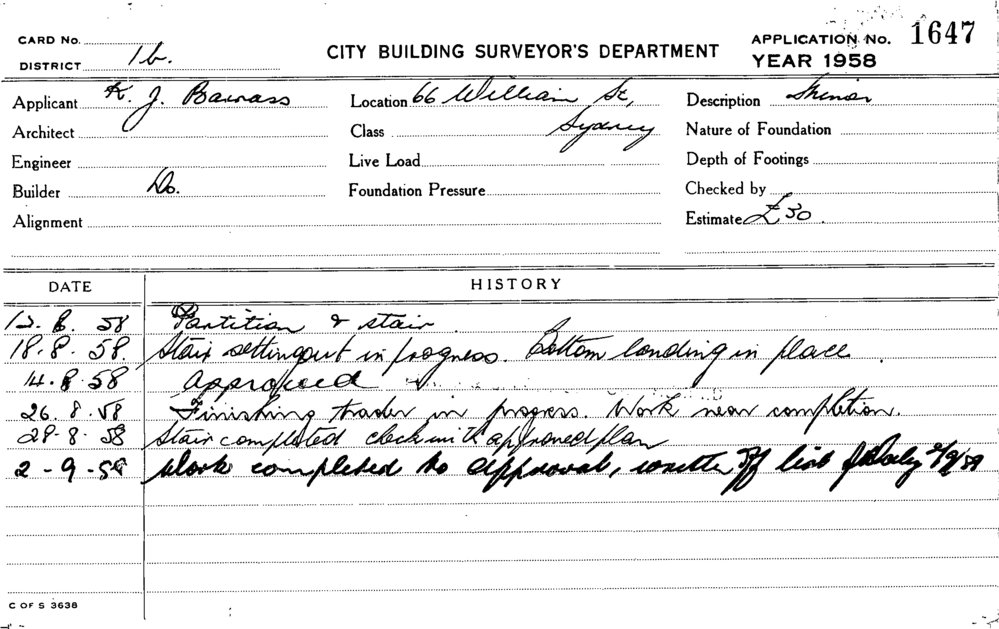 CARD No.
DISTRICT 1b.
CITY BUILDING SURVEYOR'S DEPARTMENT
APPLICATION No. 1647
YEAR 1958
Applicant K. J. Barrass
Location 66 William St,
Sydney
Description Minor
Architect
Class
Nature of Foundation
Engineer
Live Load
Depth of Footings
Builder Do.
Foundation Pressure
Checked by
Alignment
Estimate £30.
DATE HISTORY
12.8.58 Partition & stair.
18.8.58. Stair settingout in progress. Bottom landing in place.
14.8.58 Approved
26.8.58 Finishing trades in progress. Work near completion.
29.8.58 Stair completed check with approved plan
2-9-58 Work completed to approval, off list 2/9/58
C OF S 3638